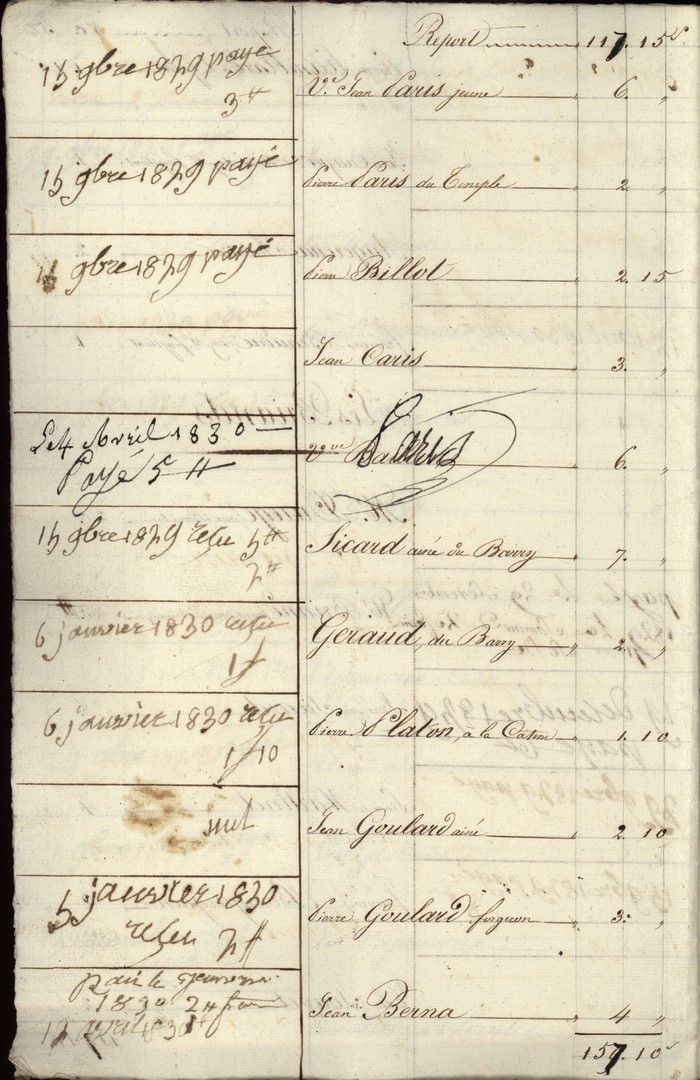 Report 117. 15 s
15 9bre 1829 payé
3 tt
Ve. Jean Paris jeune 6. "
15 9bre 1829 payé
Pierre Paris du Temple 2. "
15 9bre 1829 payé
Pierre Billot 2. 15
Jean Caris 3. "
Le 4 Avril 1830
Payé 5 tt
Vve Paris 6. "
15 9bre 1829 reçu 5 tt
2 tt
Sicard ainé du Barry 7. "
6 janvier 1830 reçu
1 f
Geraud, du Barry 2. "
6 janvier 1830 reçu
1 f 10
Pierre Platon, à la 1. 10
nul
Jean Goulard ainé 2. 10
5 janvier 1830
reçu 2 tt
Pierre Goulard forgeron 3. "
1830 2 tt
12 avril 1830
Jean Berna 4 "
157. 10 s